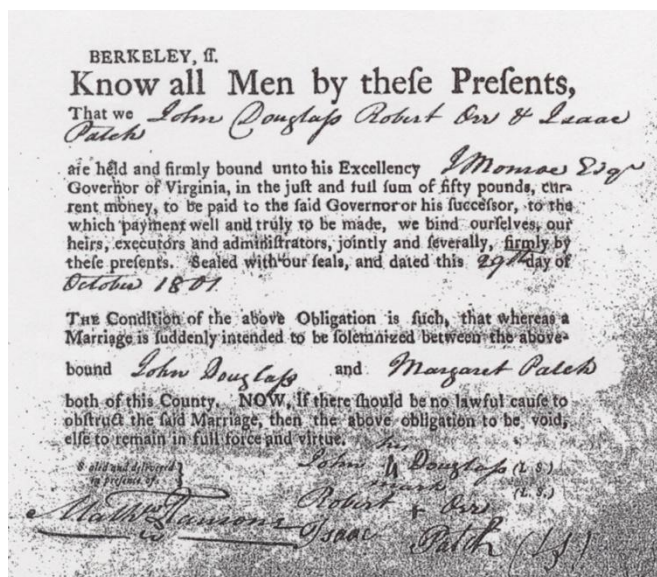 BERKELEY, ſſ.
Know all Men by theſe Preſents,
That we John Douglaſs Robert Orr & Isaac
Patch
are held and firmly bound unto his Excellency J Monroe Esqr
Governor of Virginia, in the juſt and full ſum of fifty pounds, cur-
rent money, to be paid to the ſaid Governor or his ſucceſſor, to the
which payment well and truly to be made, we bind ourſelves, our
heirs, executors and adminiſtrators, jointly and ſeverally, firmly by
theſe preſents. Sealed with our ſeals, and dated this 29th day of
October 1801
THE Condition of the above Obligation is ſuch, that whereas a
Marriage is ſuddenly intended to be ſolemnized between the above-
bound John Douglaſs and Margaret Patch
both of this County. NOW, If there ſhould be no lawful cauſe to
obſtruct the ſaid Marriage, then the above obligation to be void,
elſe to remain in full force and virtue.
his
Sealed and delivered John Douglaſs (L. S.)
in preſence of, mark (L. S.)
Robert Orr
Isaac Patch (LS)